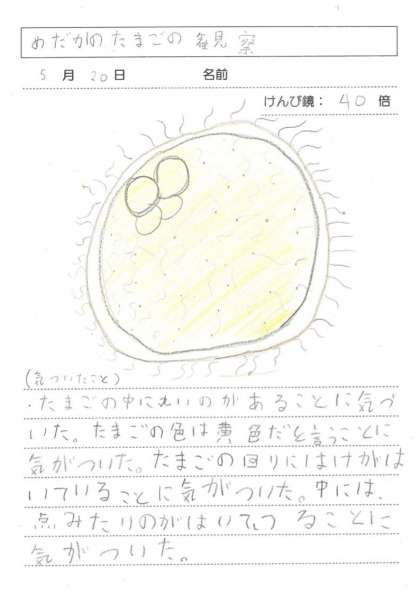 めだかのたまごの観察
5月20日 名前
けんび鏡：40倍
(気づいたこと)
・たまごの中に丸いのがあることに気づ
いた。たまごの色は黄色だと言うことに
気がついた。たまごの回りにはけがは
いていることに気がついた。中には、
点みたいのがはいてつることに
気がついた。